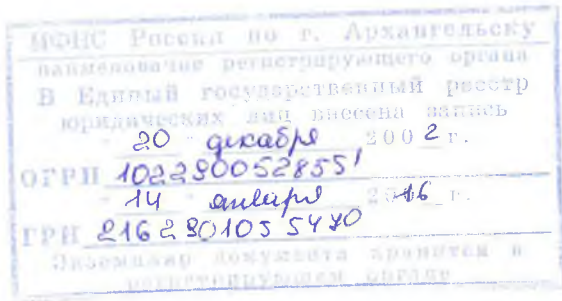 ИФНС России по г. Архангельску
наименование регистрирующего органа
В Единый государственный реестр
юридических лиц внесена запись
" 20 " декабря 2002 г.
ОГРН 1022900528551
" 14 " января 2016 г.
ГРН 2162901055470
Экземпляр документа хранится в
регистрирующем органе